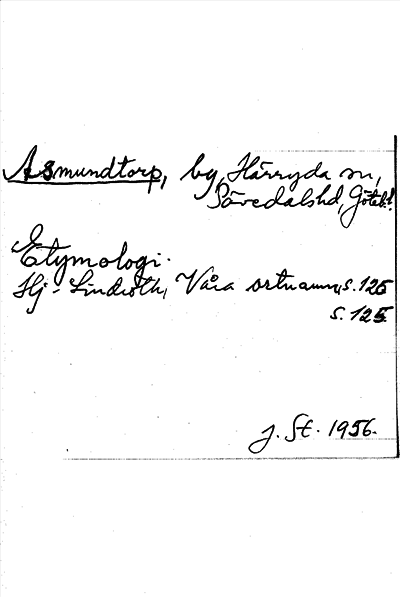 Asmundtorp, by, Härryda sn,
Sävedalshd, Göteb.
Etymologi.
Hj. Lindroth, Våra ortnamn, s. 125
s. 125.
J. St. 1956.